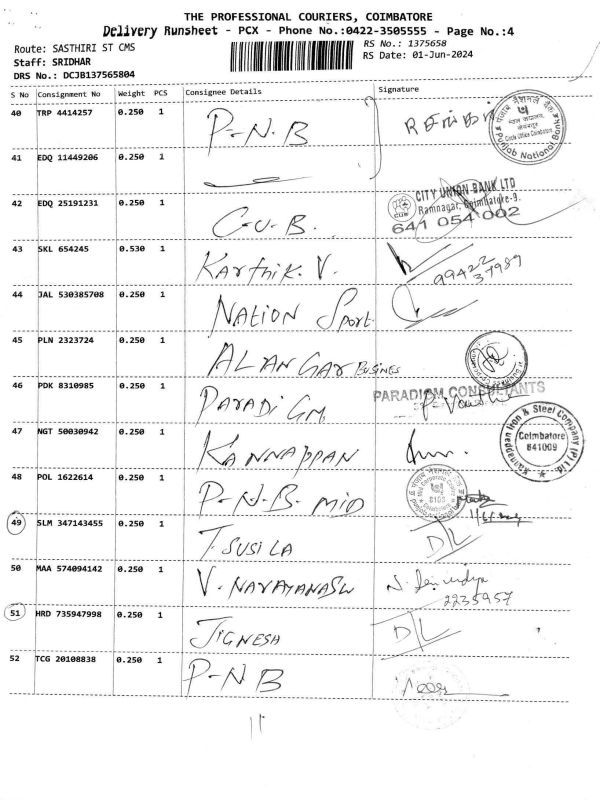 THE PROFESSIONAL COURIERS, COIMBATORE
Delivery Runsheet - PCX - Phone No.:0422-3505555 - Page No.:4
Route: SASTHIRI ST CMS
RS No.: 1375658
Staff: SRIDHAR
RS Date: 01-Jun-2024
DRS No.: DCJB137565804
S No Consignment No Weight PCS Consignee Details Signature
40 TRP 4414257 0.250 1 P-N.B
पंजाब नैशनल बैंक
Circle Office Coimbatore
Punjab National Bank
41 EDQ 11449206 0.250 1
42 EDQ 25191231 0.250 1 C-U-B. CITY UNION BANK LTD
Ramnagar, Coimbatore-9.
CUB
641 054 002
43 SKL 654245 0.530 1 Karthik. V. 99422
37989
44 JAL 530385708 0.250 1 NATION Sport
45 PLN 2323724 0.250 1 ALANGAR BUSINES
46 PDK 8310985 0.250 1 PARADIGM PARADIGM CONSULTANTS
47 NGT 50030942 0.250 1 KANNAPPAN
Kannappan Iron & Steel Company (P) Ltd.
Coimbatore
641009
48 POL 1622614 0.250 1 P-N-B-MID
49 SLM 347143455 0.250 1 T. SUSILA D/L
50 MAA 574094142 0.250 1 V. NARAYANASW
2235957
51 HRD 735947998 0.250 1 JIGNESH D/L
52 TCG 20108838 0.250 1 P-NB